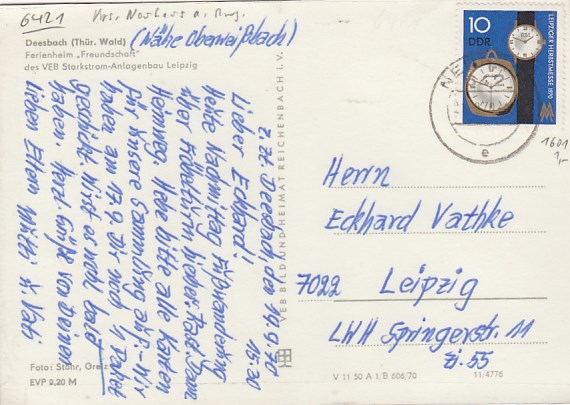 6421 Krs. Neuhaus a. Rwg.
Deesbach (Thür. Wald) (Nähe Oberweißbach)
Ferienheim „Freundschaft"
des VEB Starkstrom-Anlagenbau Leipzig
z. Zt. Deesbach, den 19.9.70
15.30
Lieber Eckhard!
Heute Nachmittag Fußwanderung
über
hierher. Jetzt zum
Heimweg. Hebe bitte alle Karten
für unsere Sammlung auf. - Wir
haben am 17.9. Dir noch 1 Paket
geschickt. Wirst es wohl bald
haben. Herzl. Grüße von Deinen
lieben Eltern Mutti & Vati
Foto: Stöhr, Greiz
EVP 0,20 M
VEB BILD UND HEIMAT REICHENBACH I. V.
10
DDR
LEIPZIGER HERBSTMESSE 1970
e
1601
1,-
Herrn
Eckhard Vathke
7022 Leipzig
LWH Springerstr. 11
Zi. 55
V 11 50 A 1/B 606/70 11/4776